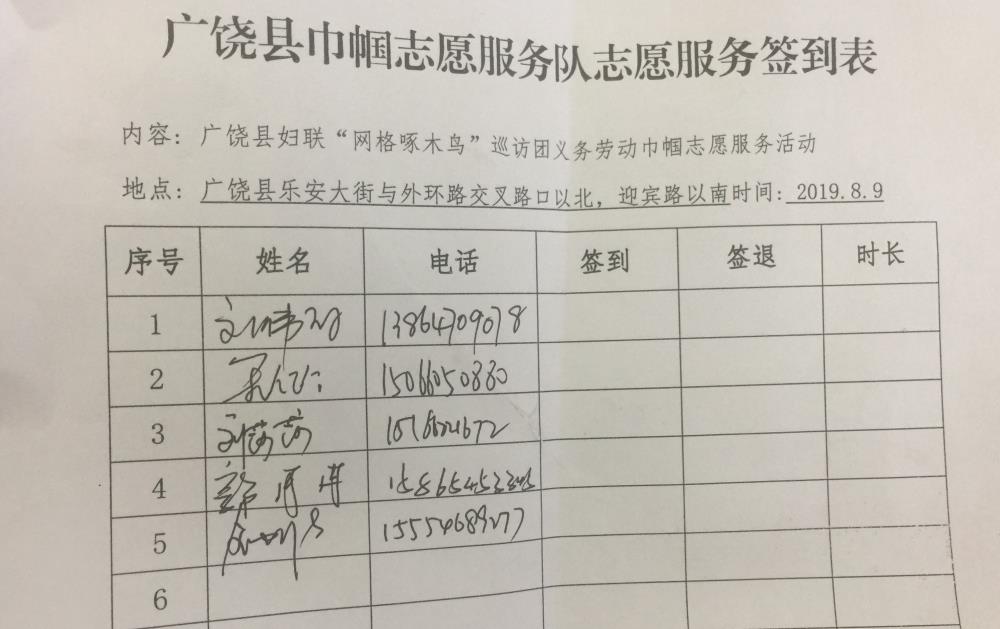 广饶县巾帼志愿服务队志愿服务签到表
内容：广饶县妇联“网格啄木鸟”巡访团义务劳动巾帼志愿服务活动
地点：广饶县乐安大街与外环路交叉路口以北，迎宾路以南时间：2019.8.9
序号 姓名 电话 签到 签退 时长
1 13864709078
2 15066050880
3 刘莎莎
4
5 15554689277
6